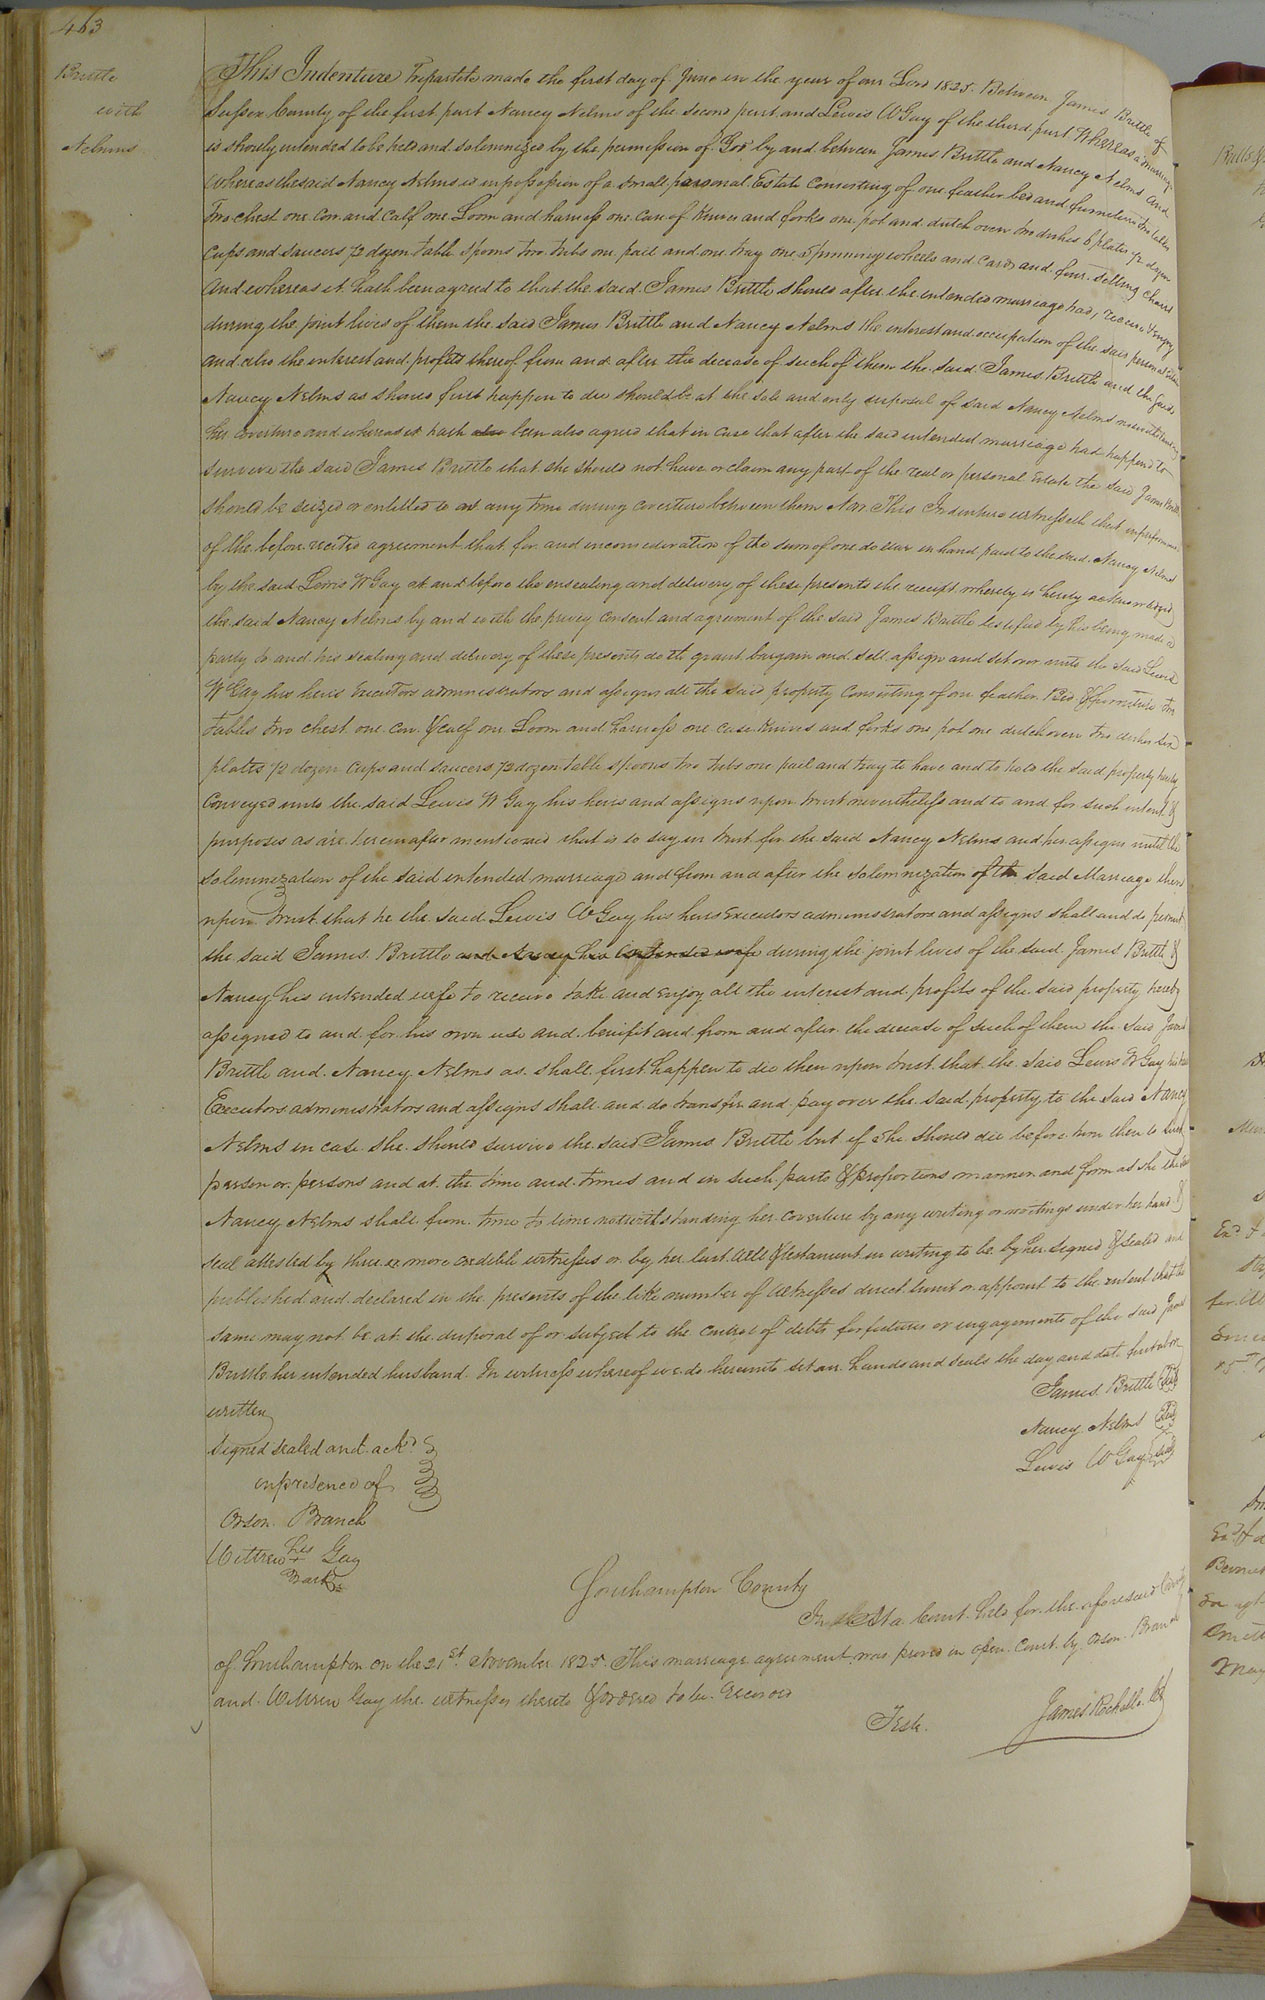 463
Brittle
with
Nelms
This Indenture Tripartite made the first day of June in the year of our Lord 1825. Between James Brittle of
Sussex County of the first part Nancy Nelms of the second part and Lewis W Gay of the third part Whereas a marriage
is shortly intended to be held and solemnized by the permission of God by and between James Brittle and Nancy Nelms And
Whereas the said Nancy Nelms is in possession of a small personal Estate Consisting of one feather bed and furniture two tables
two chest one Cow and Calf one Loom and harness one case of Knives and forks one pot and dutch oven two dishes 6 plates 1/2 dozen
Cups and saucers 1/2 dozen table spoons two tubs one pail and one tray one Spinning wheels and Cards and four Setting Chairs
And whereas it hath been agreed to that the said James Brittle should after the intended marriage had, receive & enjoy
during the joint lives of them the said James Brittle and Nancy Nelms the interest and occupation of the said personal Estate
and also the interest and profits thereof from and after the decease of such of them the said James Brittle and the said
Nancy Nelms as should first happen to die should be at the sole and only disposal of said Nancy Nelms notwithstanding
her coverture and whereas it hath also been also agreed that in case that after the said intended marriage had happened to
survive the said James Brittle that she should not have or claim any part of the real or personal Estate the said James Brittle
should be seized or entitled to at any time during coverture between them Now This Indenture witnesseth that in performance
of the before recited agreement that for and in consideration of the sum of one dollar in hand paid to the said Nancy Nelms
by the said Lewis W Gay at and before the ensealing and delivery of these presents the receipt whereby is hereby acknowledged
the said Nancy Nelms by and with the privy Consent and agreement of the said James Brittle testified by his being made a
party to and his sealing and delivery of these presents doth grant bargain and sell assign and set over unto the said Lewis
W Gay his heirs Executors administrators and assigns all the said property Consisting of one feather Bed & furniture two
tables two chest one Cow & calf one Loom and harness one case Knives and forks one pot one dutch oven two dishes six
plates 1/2 dozen Cups and saucers 1/2 dozen table spoons two tubs one pail and tray to have and to hold the said property hereby
Conveyed unto the said Lewis W Gay his heirs and assigns upon trust nevertheless and to and for such intent &
purposes as are herein after mentioned that is to say in trust for the said Nancy Nelms and her assigns until the
solemnization of the said intended marriage and from and after the solemnization of the said Marriage then
upon trust that he the said Lewis W Gay his heirs Executors administrators and assigns shall and do permit
the said James Brittle and Nancy his intended wife during the joint lives of the said James Brittle &
Nancy his intended wife to receive take and enjoy all the interest and profits of the said property hereby
assigned to and for his own use and benifit and from and after the decease of such of them the said James
Brittle and Nancy Nelms as shall first happen to die then upon trust that the said Lewis W Gay his heirs
Executors administrators and assigns shall and do transfer and pay over the said property to the said Nancy
Nelms in case she should survive the said James Brittle but if she should die before him then to such
person or persons and at the time and times and in such parts & proportions manner and form as she the said
Nancy Nelms shall from time to time notwithstanding her coverture by any writing or writings under her hand &
seal attested by three or more credible witnesses or by her last will & testament in writing to be by her signed & sealed and
published and declared in the presents of the like number of witnesses direct limit or appoint to the intent that the
same may not be at the disposal of or subject to the control of debts forfeitures or engagements of the said James
Brittle her intended husband. In witness whereof we do hereunto set our hands and seals the day and date first above
written
James Brittle (Seal)
Nancy Nelms (Seal)
Lewis W Gay (Seal)
Signed sealed and ackd
in presence of
Orson Branch
Wittnew his Gay
+
mark
Southampton County
In At a Court held for the aforesaid County
of Southampton on the 21st November 1825. This marriage agreement was proved in open Court by Orson Branch
and Wittnew Gay the witnesses thereto & ordered to be Recorded
Teste.
James Rochelle Clk